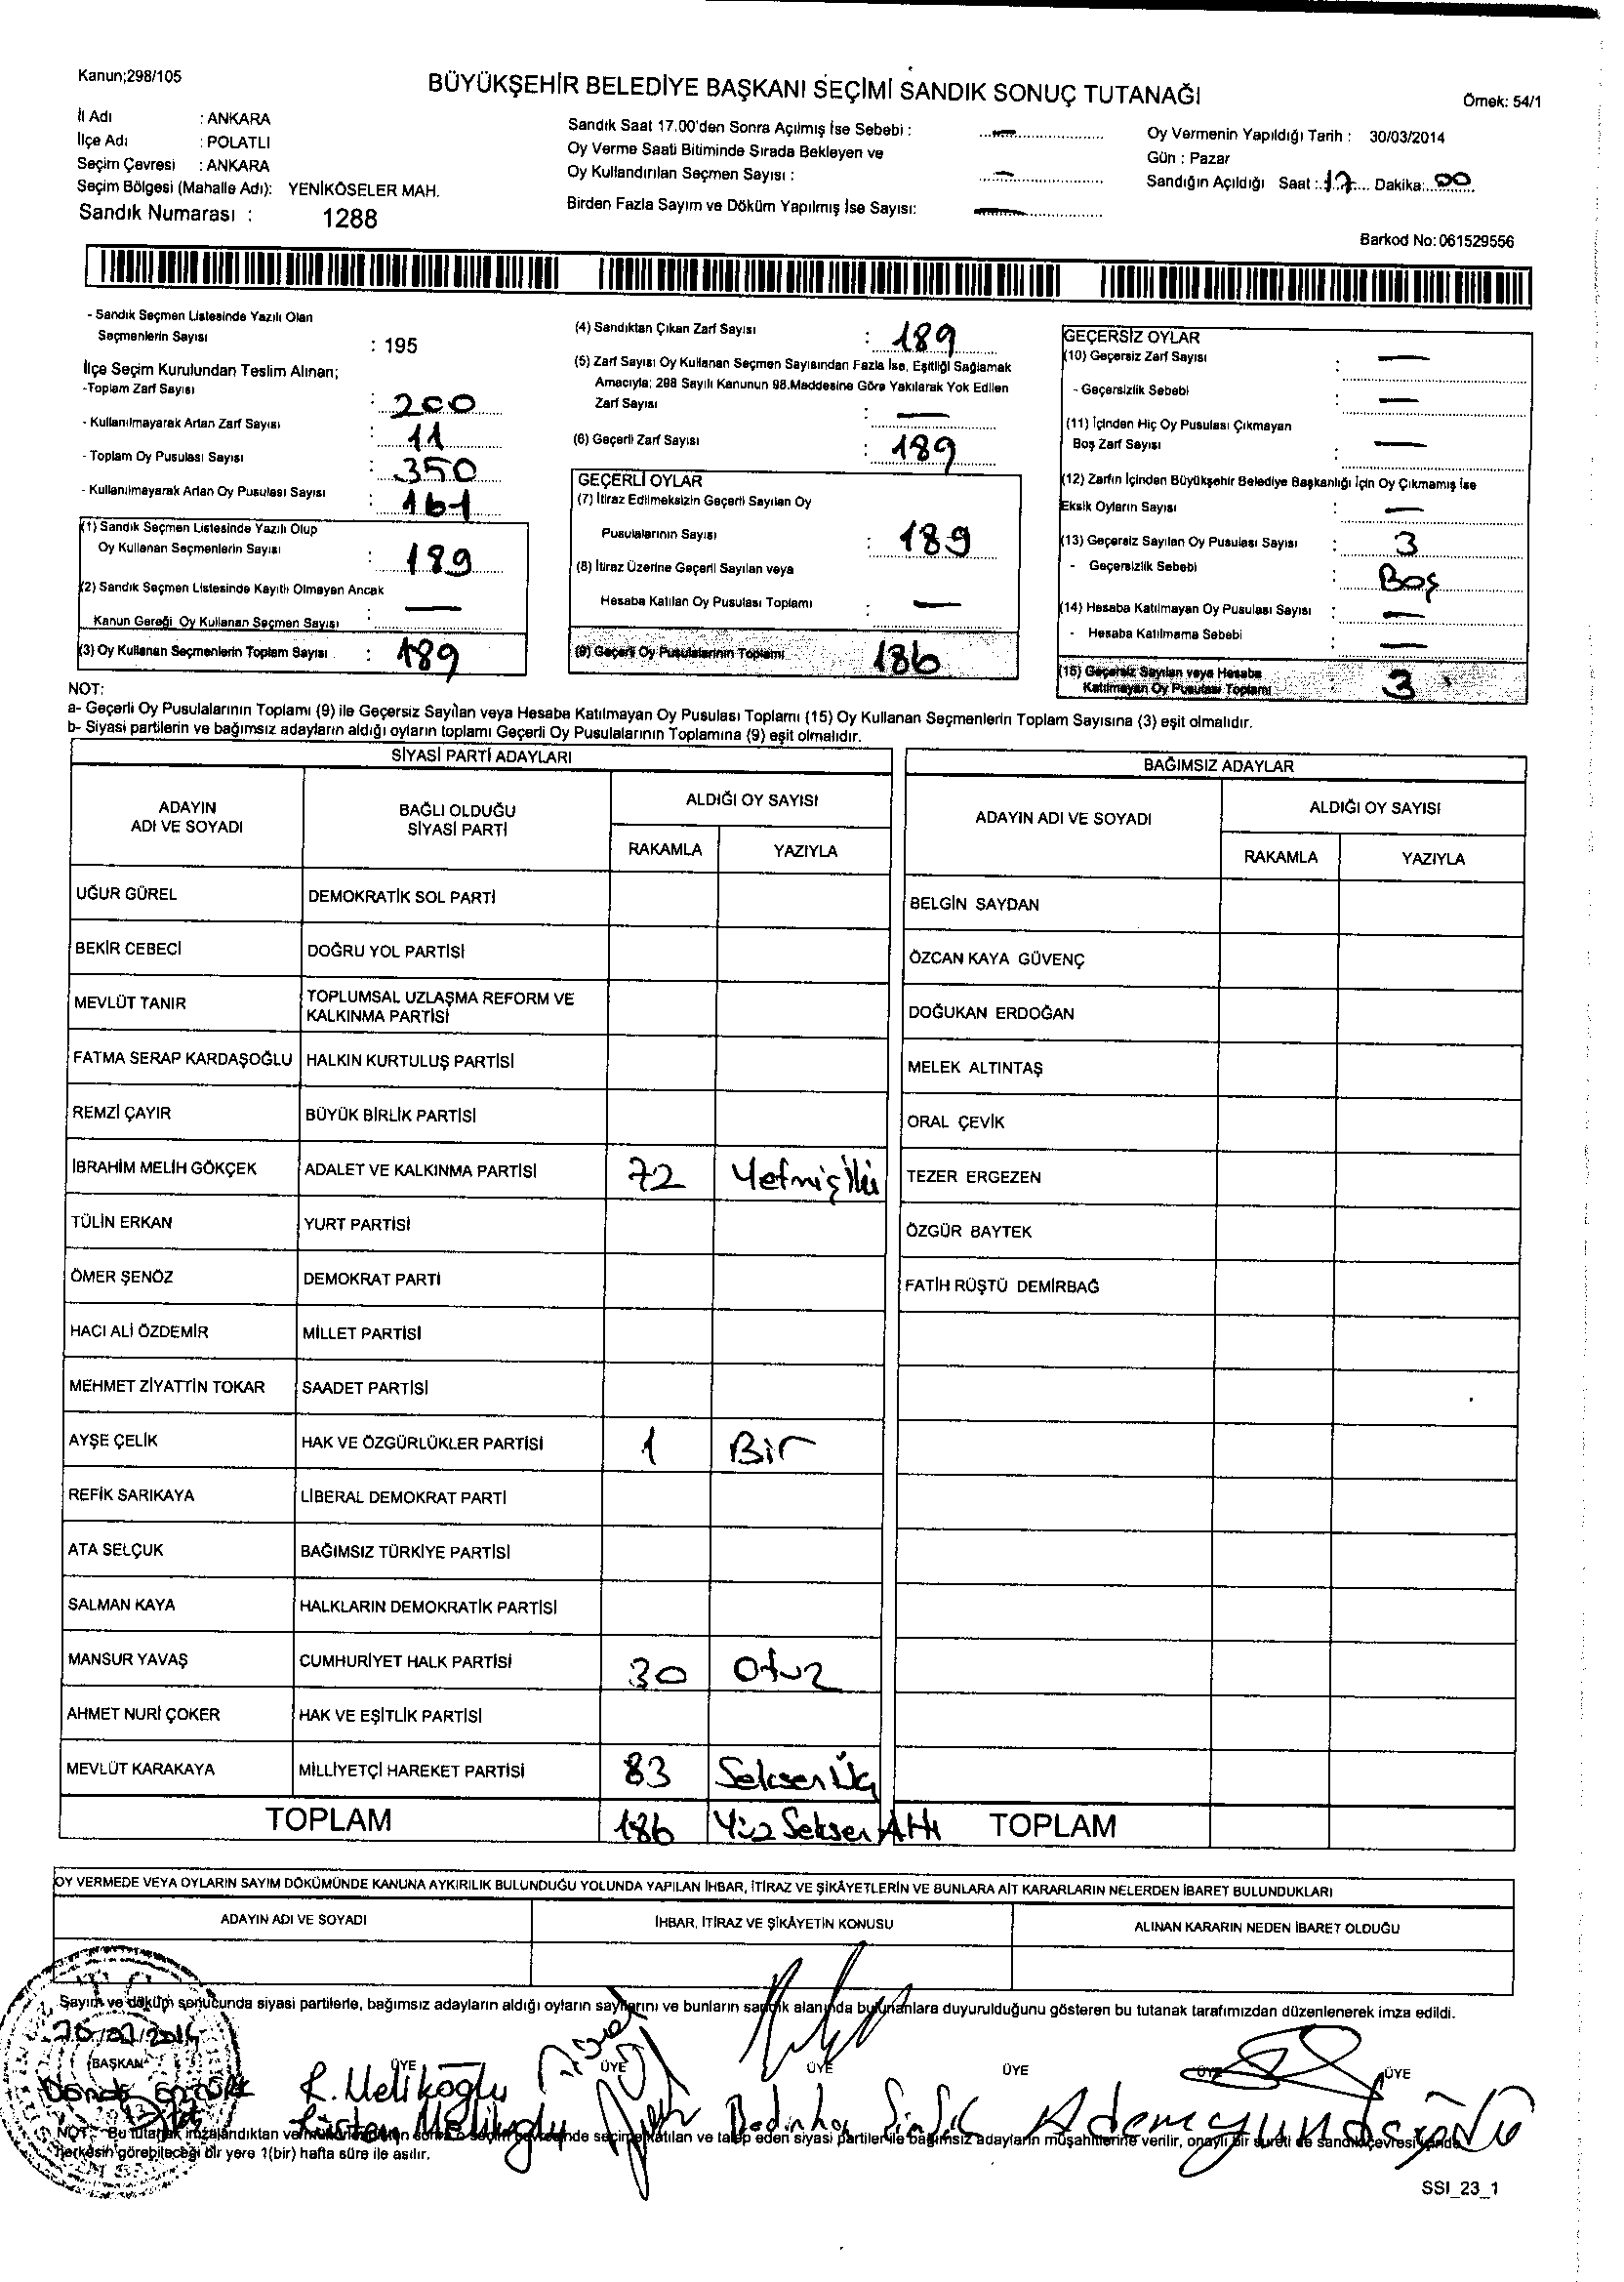 Kanun;298/105
BÜYÜKŞEHİR BELEDİYE BAŞKANI SEÇİMİ SANDIK SONUÇ TUTANAĞI
Örnek: 54/1
İl Adı : ANKARA
İlçe Adı : POLATLI
Seçim Çevresi : ANKARA
Seçim Bölgesi (Mahalle Adı): YENİKÖSELER MAH.
Sandık Numarası : 1288
Sandık Saat 17.00'den Sonra Açılmış İse Sebebi : —
Oy Verme Saati Bitiminde Sırada Bekleyen ve
Oy Kullandırılan Seçmen Sayısı : —
Birden Fazla Sayım ve Döküm Yapılmış İse Sayısı: —
Oy Vermenin Yapıldığı Tarih : 30/03/2014
Gün : Pazar
Sandığın Açıldığı Saat : 17 Dakika: 00
Barkod No: 061529556
- Sandık Seçmen Listesinde Yazılı Olan
Seçmenlerin Sayısı : 195
İlçe Seçim Kurulundan Teslim Alınan;
-Toplam Zarf Sayısı : 200
- Kullanılmayarak Artan Zarf Sayısı : 11
- Toplam Oy Pusulası Sayısı : 350
- Kullanılmayarak Artan Oy Pusulası Sayısı : 161
(1) Sandık Seçmen Listesinde Yazılı Olup
Oy Kullanan Seçmenlerin Sayısı : 189
(2) Sandık Seçmen Listesinde Kayıtlı Olmayan Ancak
Kanun Gereği Oy Kullanan Seçmen Sayısı : —
(3) Oy Kullanan Seçmenlerin Toplam Sayısı : 189
(4) Sandıktan Çıkan Zarf Sayısı : 189
(5) Zarf Sayısı Oy Kullanan Seçmen Sayısından Fazla İse, Eşitliği Sağlamak
Amacıyla; 298 Sayılı Kanunun 98.Maddesine Göre Yakılarak Yok Edilen
Zarf Sayısı : —
(6) Geçerli Zarf Sayısı : 189
GEÇERLİ OYLAR
(7) İtiraz Edilmeksizin Geçerli Sayılan Oy
Pusulalarının Sayısı : 189
(8) İtiraz Üzerine Geçerli Sayılan veya
Hesaba Katılan Oy Pusulası Toplamı : —
(9) Geçerli Oy Pusulalarının Toplamı 186
GEÇERSİZ OYLAR
(10) Geçersiz Zarf Sayısı : —
- Geçersizlik Sebebi : —
(11) İçinden Hiç Oy Pusulası Çıkmayan
Boş Zarf Sayısı : —
(12) Zarfın İçinden Büyükşehir Belediye Başkanlığı İçin Oy Çıkmamış İse
Eksik Oyların Sayısı : —
(13) Geçersiz Sayılan Oy Pusulası Sayısı : 3
- Geçersizlik Sebebi : Boş
(14) Hesaba Katılmayan Oy Pusulası Sayısı : —
- Hesaba Katılmama Sebebi : —
(15) Geçersiz Sayılan veya Hesaba
Katılmayan Oy Pusulası Toplamı : 3
NOT:
a- Geçerli Oy Pusulalarının Toplamı (9) ile Geçersiz Sayılan veya Hesaba Katılmayan Oy Pusulası Toplamı (15) Oy Kullanan Seçmenlerin Toplam Sayısına (3) eşit olmalıdır.
b- Siyasi partilerin ve bağımsız adayların aldığı oyların toplamı Geçerli Oy Pusulalarının Toplamına (9) eşit olmalıdır.
SİYASİ PARTİ ADAYLARI
ADAYIN ADI VE SOYADI BAĞLI OLDUĞU SİYASİ PARTİ ALDIĞI OY SAYISI
RAKAMLA YAZIYLA
UĞUR GÜREL DEMOKRATİK SOL PARTİ
BEKİR CEBECİ DOĞRU YOL PARTİSİ
MEVLÜT TANIR TOPLUMSAL UZLAŞMA REFORM VE
KALKINMA PARTİSİ
FATMA SERAP KARDAŞOĞLU HALKIN KURTULUŞ PARTİSİ
REMZİ ÇAYIR BÜYÜK BİRLİK PARTİSİ
İBRAHİM MELİH GÖKÇEK ADALET VE KALKINMA PARTİSİ 72 Yetmiş İki
TÜLİN ERKAN YURT PARTİSİ
ÖMER ŞENÖZ DEMOKRAT PARTİ
HACI ALİ ÖZDEMİR MİLLET PARTİSİ
MEHMET ZİYATTİN TOKAR SAADET PARTİSİ
AYŞE ÇELİK HAK VE ÖZGÜRLÜKLER PARTİSİ 1 Bir
REFİK SARIKAYA LİBERAL DEMOKRAT PARTİ
ATA SELÇUK BAĞIMSIZ TÜRKİYE PARTİSİ
SALMAN KAYA HALKLARIN DEMOKRATİK PARTİSİ
MANSUR YAVAŞ CUMHURİYET HALK PARTİSİ 30 Otuz
AHMET NURİ ÇOKER HAK VE EŞİTLİK PARTİSİ
MEVLÜT KARAKAYA MİLLİYETÇİ HAREKET PARTİSİ 83 Seksen Üç
TOPLAM 186 Yüz Seksen Altı
BAĞIMSIZ ADAYLAR
ADAYIN ADI VE SOYADI ALDIĞI OY SAYISI
RAKAMLA YAZIYLA
BELGİN SAYDAN
ÖZCAN KAYA GÜVENÇ
DOĞUKAN ERDOĞAN
MELEK ALTINTAŞ
ORAL ÇEVİK
TEZER ERGEZEN
ÖZGÜR BAYTEK
FATİH RÜŞTÜ DEMİRBAĞ
TOPLAM
OY VERMEDE VEYA OYLARIN SAYIM DÖKÜMÜNDE KANUNA AYKIRILIK BULUNDUĞU YOLUNDA YAPILAN İHBAR, İTİRAZ VE ŞİKÂYETLERİN VE BUNLARA AİT KARARLARIN NELERDEN İBARET BULUNDUKLARI
ADAYIN ADI VE SOYADI İHBAR, İTİRAZ VE ŞİKÂYETİN KONUSU ALINAN KARARIN NEDEN İBARET OLDUĞU
Sayım ve döküm sonucunda siyasi partilerle, bağımsız adayların aldığı oyların sayılarını ve bunların sandık alanında bulunanlara duyurulduğunu gösteren bu tutanak tarafımızdan düzenlenerek imza edildi.
BAŞKAN ÜYE ÜYE ÜYE ÜYE ÜYE ÜYE
R. Melikoğlu
NOT: Bu tutanak imzalandıktan ve seçime katılan ve talep eden siyasi partiler ile bağımsız adayların müşahitlerine verilir, onaylı bir sureti de sandık çevresi
herkesin görebileceği bir yere 1(bir) hafta süre ile asılır.
SSI_23_1